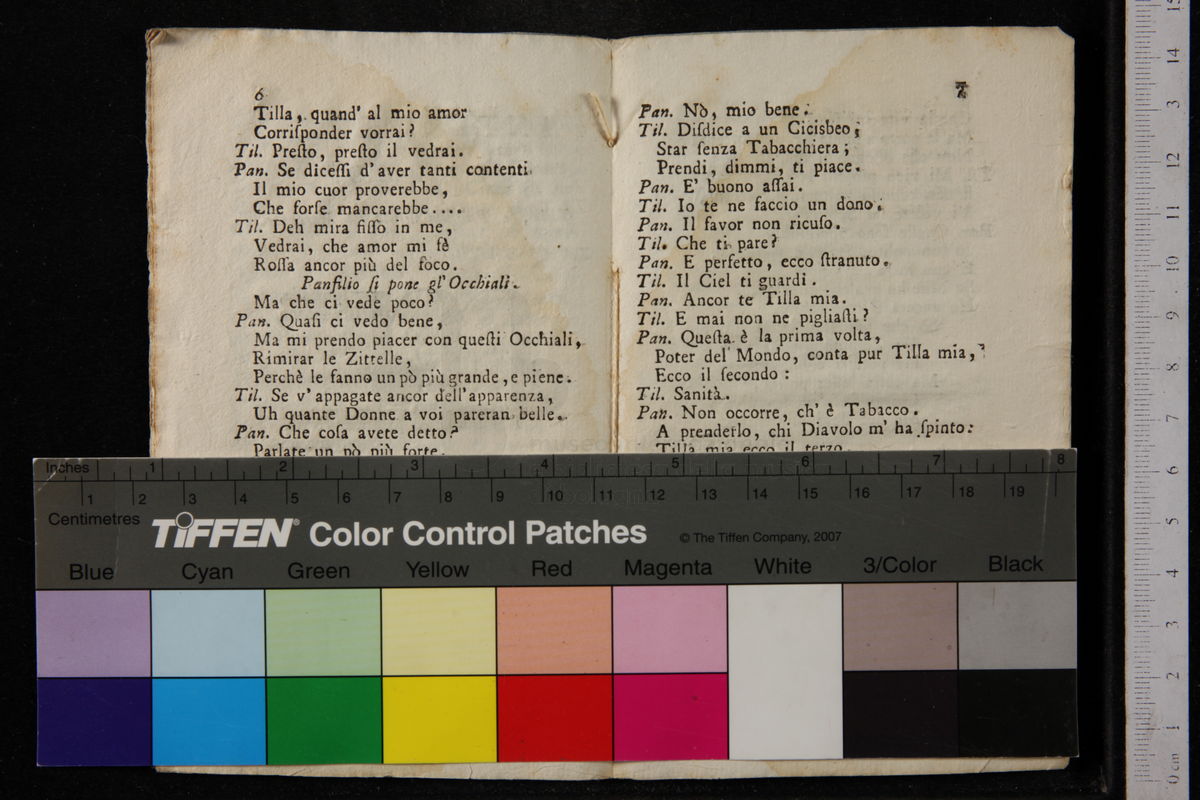 6
Tilla, quand' al mio amor
Corriſponder vorrai?
Til. Preſto, preſto il vedrai.
Pan. Se diceſſi d'aver tanti contenti
Il mio cuor proverebbe,
Che forſe mancarebbe....
Til. Deh mira fiſſo in me,
Vedrai, che amor mi fè
Roſſa ancor più del foco.
Panfilio ſi pone gl' Occhiali.
Ma che ci vede poco?
Pan. Quaſi ci vedo bene,
Ma mi prendo piacer con queſti Occhiali,
Rimirar le Zittelle,
Perchè le fanno un pò più grande, e piene.
Til. Se v' appagate ancor dell'apparenza,
Uh quante Donne a voi pareran belle.
Pan. Che coſa avete detto?
Parlate un pò più forte.
7
Pan. Nò, mio bene.
Til. Diſdice a un Cicisbeo;
Star ſenza Tabacchiera;
Prendi, dimmi, ti piace.
Pan. E' buono aſſai.
Til. Io te ne faccio un dono.
Pan. Il favor non ricuſo.
Til. Che ti pare?
Pan. E perfetto, ecco ſtranuto.
Til. Il Ciel ti guardi.
Pan. Ancor te Tilla mia.
Til. E mai non ne pigliaſti?
Pan. Queſta è la prima volta,
Poter del Mondo, conta pur Tilla mia,
Ecco il ſecondo:
Til. Sanità.
Pan. Non occorre, ch' è Tabacco.
A prenderlo, chi Diavolo m' ha ſpinto:
Tilla mia ecco il terzo.
Inches 1 2 3 4 5 6 7 8
1 2 3 4 5 6 7 8 9 10 11 12 13 14 15 16 17 18 19
Centimetres
TIFFEN® Color Control Patches © The Tiffen Company, 2007
Blue Cyan Green Yellow Red Magenta White 3/Color Black
15
14
3
12
11
10
9
8
7
6
5
4
3
2
1
0 cm